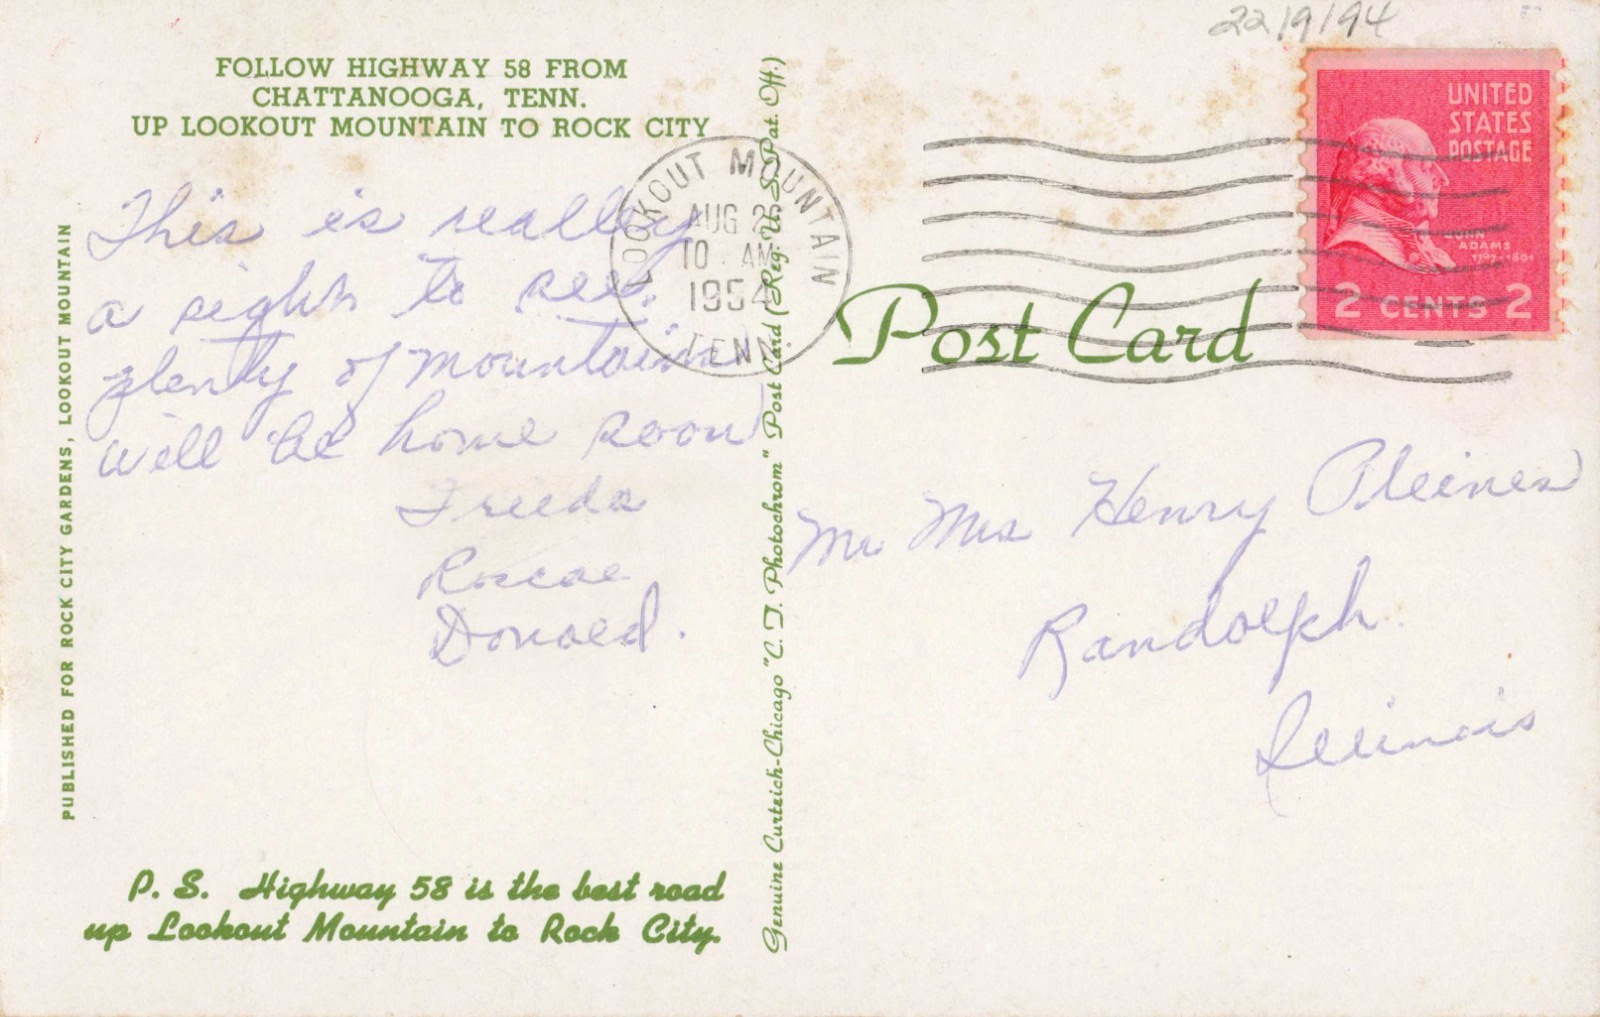 22/9/94
FOLLOW HIGHWAY 58 FROM
CHATTANOOGA, TENN.
UP LOOKOUT MOUNTAIN TO ROCK CITY
PUBLISHED FOR ROCK CITY GARDENS, LOOKOUT MOUNTAIN
This is really
a sight to see.
plenty of mountains
will be home soon
Freeda
Roscoe
Donald.
P. S. Highway 58 is the best road
up Lookout Mountain to Rock City.
Genuine Curteich-Chicago "C. T. Photochrom" Post Card (Reg. U. S. Pat. Off.)
LOOKOUT MOUNTAIN
AUG 2
10 AM
1954
TENN.
UNITED
STATES
POSTAGE
JOHN
ADAMS
1797-1801
2 CENTS 2
Post Card
Mr Mrs Henry
Randolph
Illinois